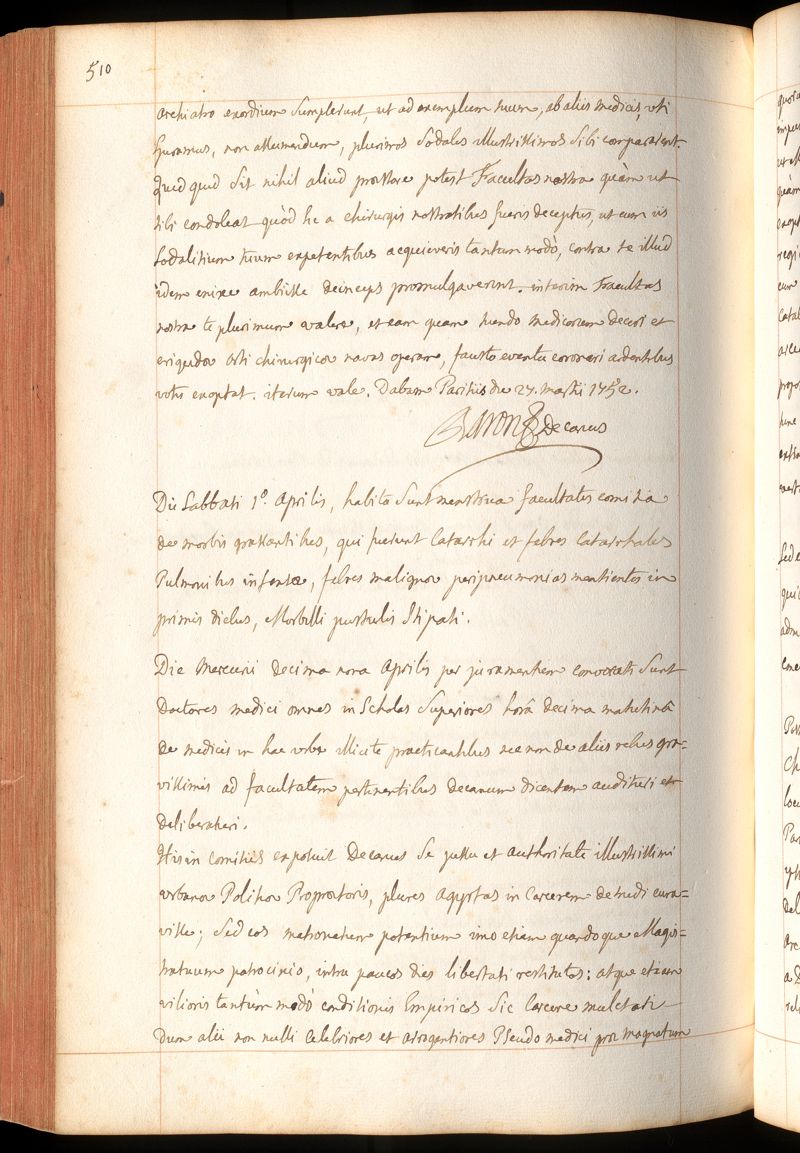 510
archiatro exordium sumpserunt, ut ad exemplum tuum, ab aliis medicis, uti
speramus, non assumendum, plurimos sodales illustrissimos sibi compararent.
Quid quid sit nihil aliud praestare potest Facultas nostra quàm ut
tibi condoleat quòd hic a chirurgis nostratibus fueris deceptus, ut cum iis
sodalitium tuum expetentibus acquieveris tantum modò, contra te illud
idem enixe ambiisse deinceps promulgaverint. interim Facultas
nostra te plurimum valere, et eam quam tuendo medicorum decori et
erigendae arti chirurgicae navas operam, fausto eventu coronari ardentibus
votis exoptat. iterum vale. Dabam Parisiis die 27. martii 1752.
Baron Decanus
Die Sabbati 1º. Aprilis, habita sunt menstrua facultatis comitia
de morbis grassantibus, qui fuerunt Catarrhi et febres Catarrhales
Pulmonibus infensae, febres malignae peripneumonias mentientes in
primis diebus, Morbilli pustulis stipati.
Die Mercurii decima nona Aprilis per juramentum convocati sunt
Doctores medici omnes in Scholas Superiores horâ decima matutinâ
de medicis in hac urbe illicite practicantibus nec non de aliis rebus gra-
vissimis ad facultatem pertinentibus decanum dicentem audituri et
deliberaturi.
His in comitiis exposuit Decanus se jussu et authoritate illustrissimi
urbanae Politiae Propraetoris, plures agyrtas in Carcerem detrudi cura-
visse; sed eos matronarum potentium imo etiam quandoque Magis-
tratuum patrocinio, intra paucos dies libertati restitutos: atque etiam
vilioris tantùm modò conditionis Empiricos sic Carcere mulctati
dum alii non nulli celebriores et arrogantiores Pseudo medici prae magnatum